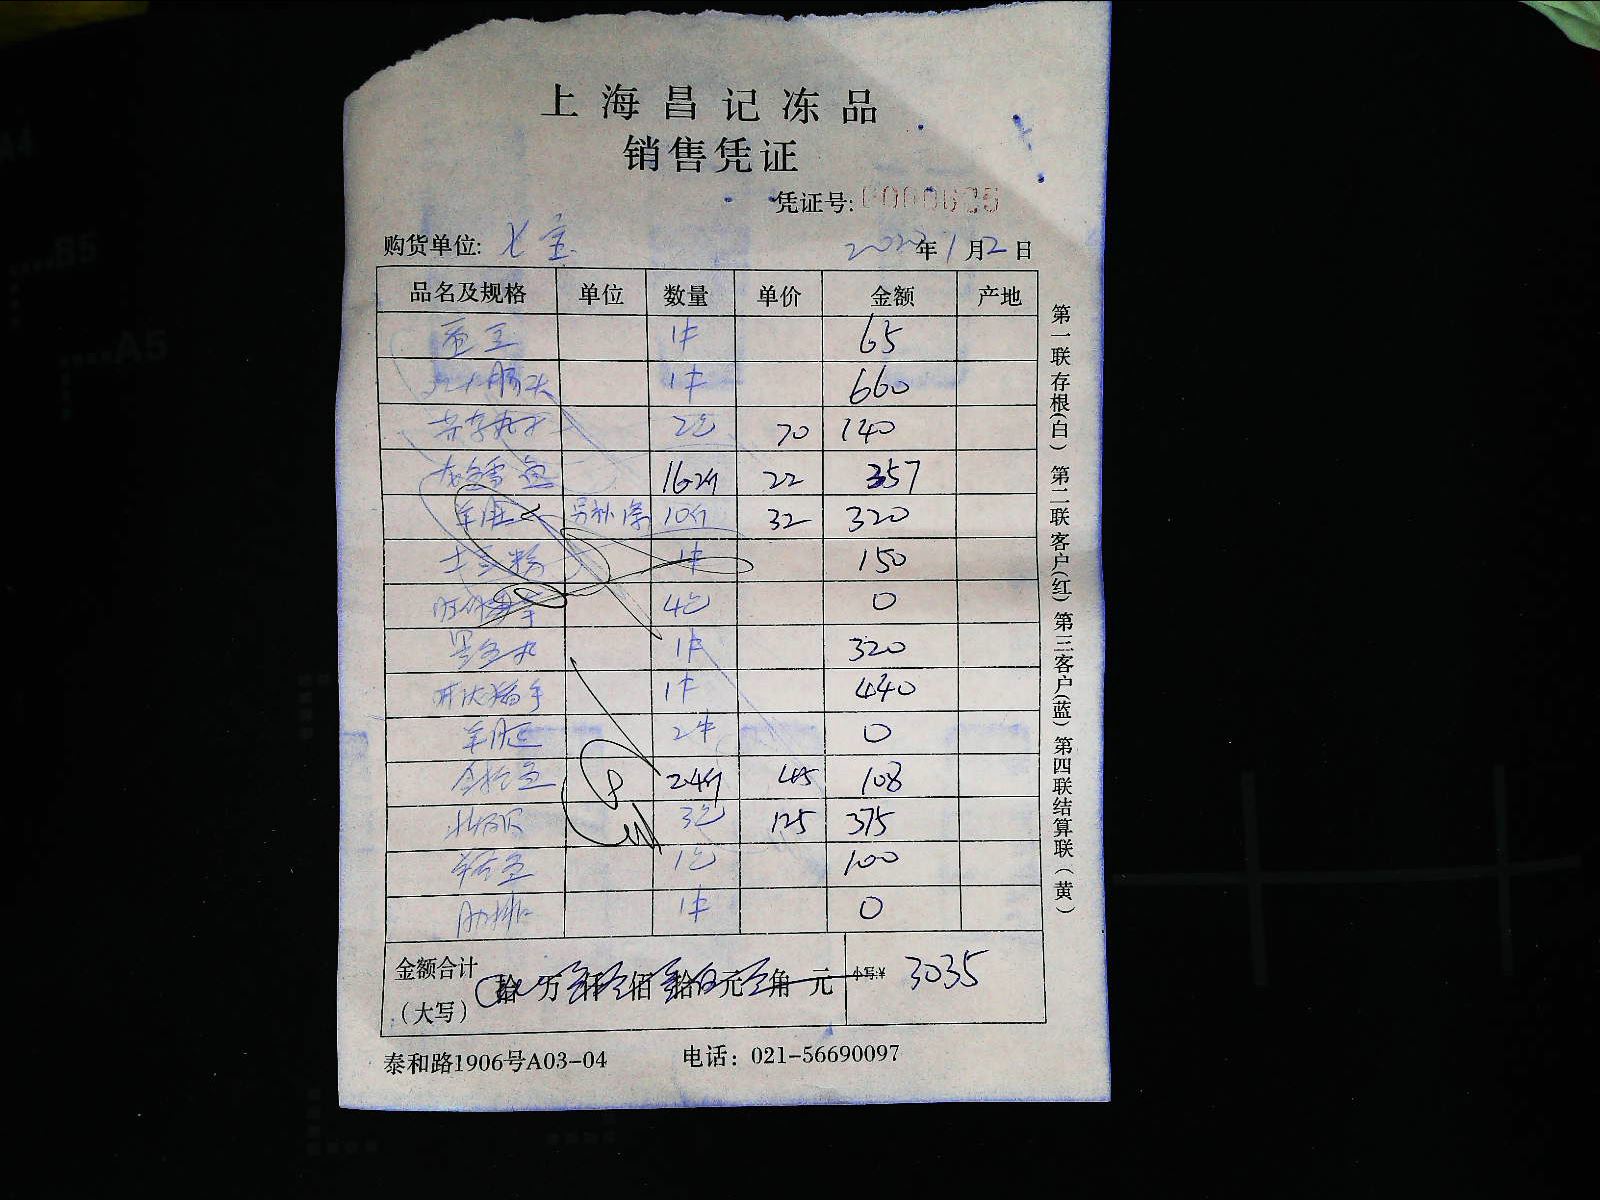 上海昌记冻品
销售凭证
凭证号: 0000625
购货单位: 七宝 2023年1月2日
品名及规格 单位 数量 单价 金额 产地
1件 65
1件 660
2包 70 140
龙利鱼 162斤 22 357
羊腿 10斤 32 320
土豆粉 1件 150
4包 0
1件 320
猪手 1件 440
羊腿 2件 0
金枪鱼 24斤 45 108
北极贝 3包 125 375
1包 100
肋排 1件 0
金额合计
(大写) 拾 万 仟 佰 拾 元 角 元 小写:¥ 3035
泰和路1906号A03-04 电话: 021-56690097
第一联存根(白) 第二联客户(红) 第三客户(蓝) 第四联结算联(黄)